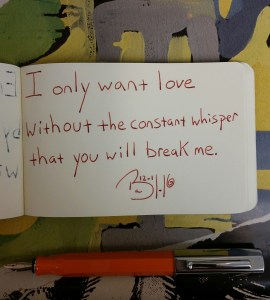 I only want love
without the constant whisper
that you will break me.